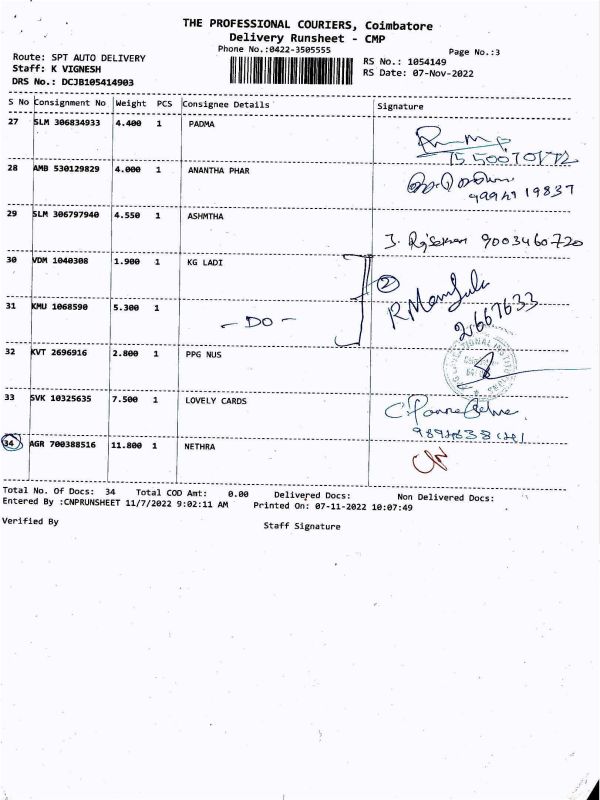 THE PROFESSIONAL COURIERS, Coimbatore
Delivery Runsheet - CMP
Phone No.:0422-3505555
Page No.:3
Route: SPT AUTO DELIVERY
Staff: K VIGNESH
DRS No.: DCJB105414903
RS No.: 1054149
RS Date: 07-Nov-2022
S No Consignment No Weight PCS Consignee Details Signature
27 SLM 306834933 4.400 1 PADMA
28 AMB 530129829 4.000 1 ANANTHA PHAR
29 SLM 306797940 4.550 1 ASHMTHA
9003460720
30 VDM 1040308 1.900 1 KG LADI
2
R. Manjula
2667633
31 KMU 1068590 5.300 1 - DO -
32 KVT 2696916 2.800 1 PPG NUS
33 SVK 10325635 7.500 1 LOVELY CARDS
34 AGR 700388516 11.800 1 NETHRA
Total No. Of Docs: 34 Total COD Amt: 0.00 Delivered Docs: Non Delivered Docs:
Entered By :CNPRUNSHEET 11/7/2022 9:02:11 AM Printed On: 07-11-2022 10:07:49
Verified By Staff Signature